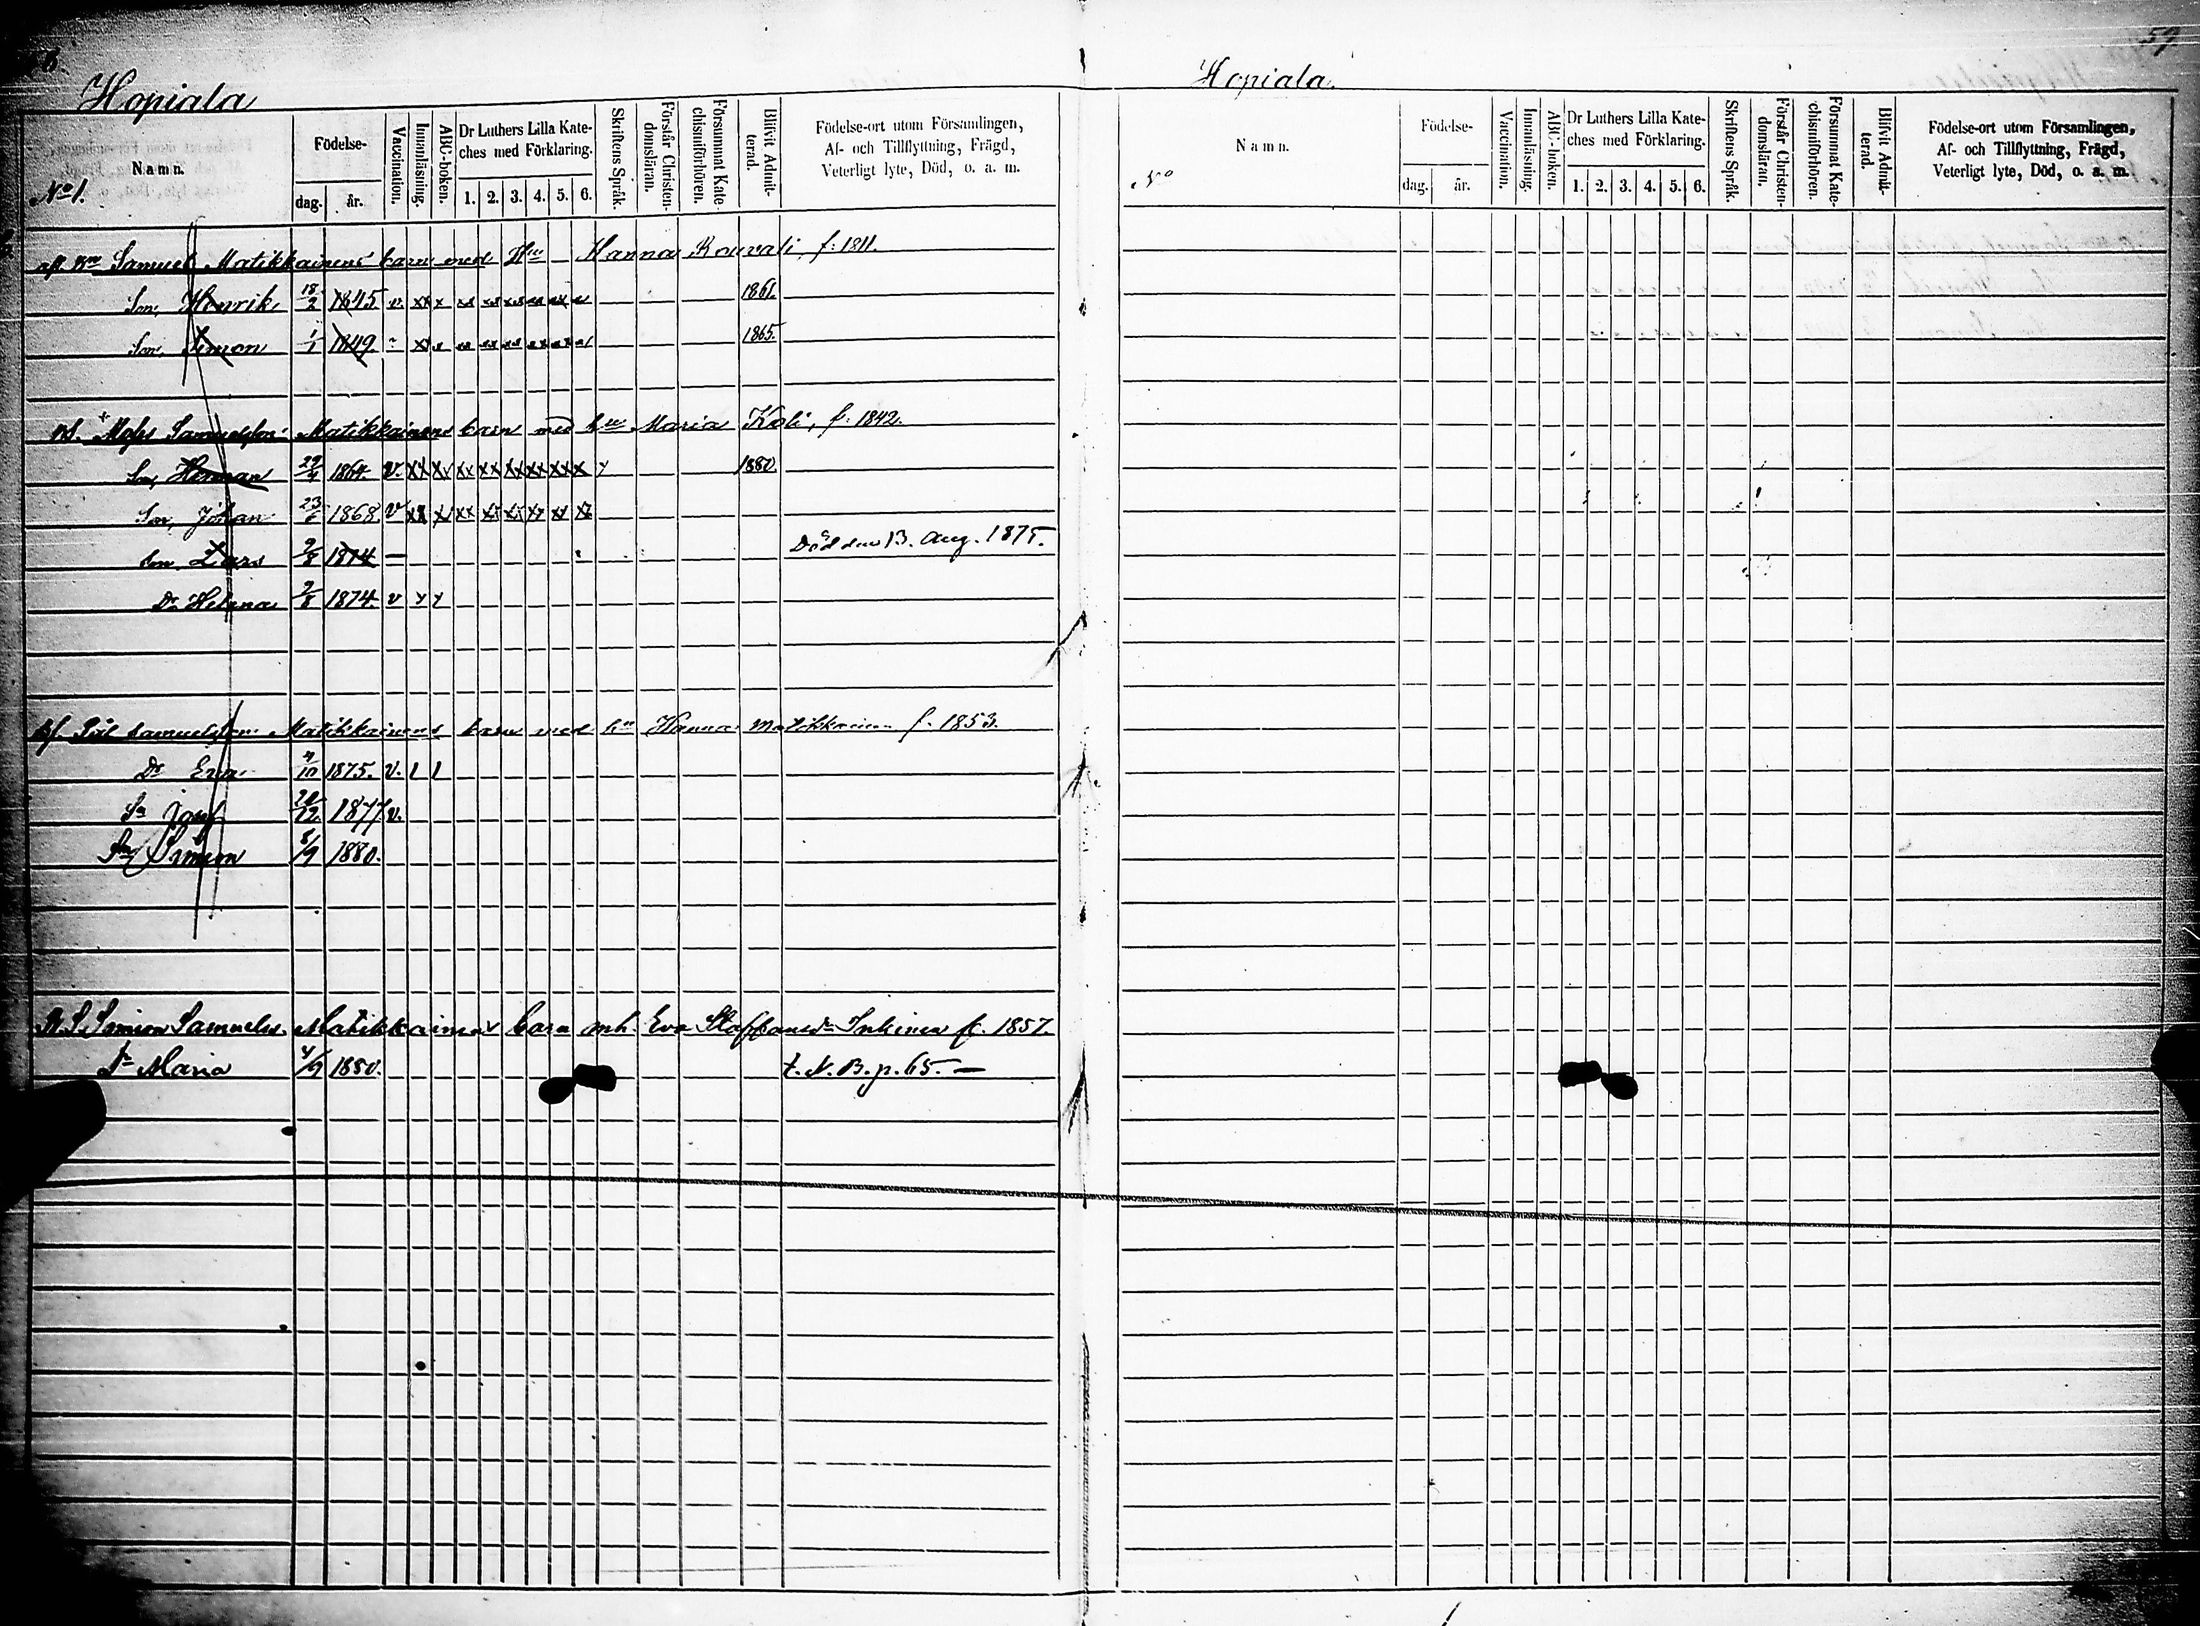 59
Hopiala
Hopiala
Namn.
Födelse-
dag. år.
Vaccination.
Innanläsning.
ABC-boken.
Dr Luthers Lilla Kate-
ches med Förklaring.
1. 2. 3. 4. 5. 6.
Skriftens Språk.
Förstår Christen-
domsläran.
Försummat Kate-
chismiförhören.
Blifvit Admit-
terad.
Födelse-ort utom Församlingen,
Af- och Tillflyttning, Frägd,
Veterligt lyte, Död, o. a. m.
No 1.
Samuel Matikkainens barn med Hu Hanna f. 1811.
Son, Henrik 18/2 1845 v. 1861.
Son, Simon 1/1 1849. 1865.
Samuelsson Matikkainens barn med hu Maria Koli, f. 1842.
Son, Herman 29/4 1864. v. 1880.
Son, Johan 23/6 1868 v
Son Lars 9/8 1874 — Död den 13. Aug. 1875.
Dr Helena 9/8 1874. v
Pål Samuelsson Matikkainens barn med hu Hanna Matikkainen f. 1853.
Dr Eva 4/10 1875. v. 1 1
Sn Josef 20/12 1877 v.
Sn Simon 8/9 1880.
Simon Samuels. Matikkainens barn mh. Eva Staffansdr Inkinen f. 1857.
Dr Maria 4/9 1880. t. N. B. p. 65. —
Namn.
No
Födelse-
dag. år.
Vaccination.
Innanläsning.
ABC-boken.
Dr Luthers Lilla Kate-
ches med Förklaring.
1. 2. 3. 4. 5. 6.
Skriftens Språk.
Förstår Christen-
domsläran.
Försummat Kate-
chismiförhören.
Blifvit Admit-
terad.
Födelse-ort utom Församlingen,
Af- och Tillflyttning, Frägd,
Veterligt lyte, Död, o. a. m.